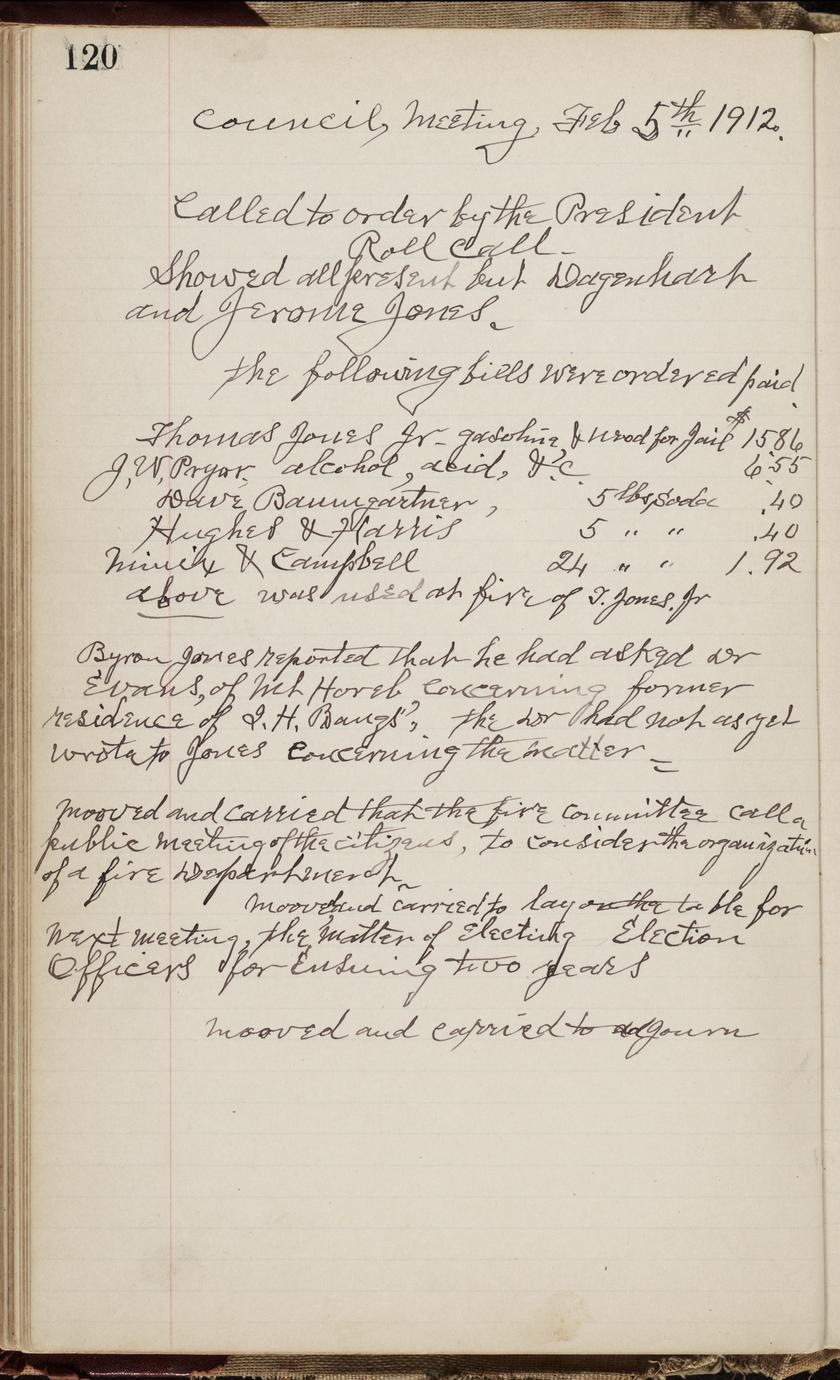 120
Council, Meeting, Feb 5th 1912.
Called to order by the President
Roll Call -
Showed all present but Dagenhart
and Jerome Jones.
the following bills were ordered paid.
Thomas Jones Jr - gasoline, & wood for Jail $ 1586
J, W, Pryor. alcohol, acid, &c. 6.55
Dave Baumgartner, 5 lbs, soda .40
Hughes & Harris 5 " " .40
Minix & Campbell 24 " " 1.92
above was used at fire of T. Jones. Jr
Byron Jones reported that he had asked Dr
Evans, of Mt Horeb concerning former
residence of J. H. Bangs", the Dr had not as yet
wrote to Jones concerning the matter =
Mooved and carried that the fire committee call a
public meeting of the citizens, to consider the organization
of a fire Department
Mooved and carried to lay on the table for
next meeting, the matter of Electing Election
Officers for Ensuing two years
Mooved and carried to adjourn